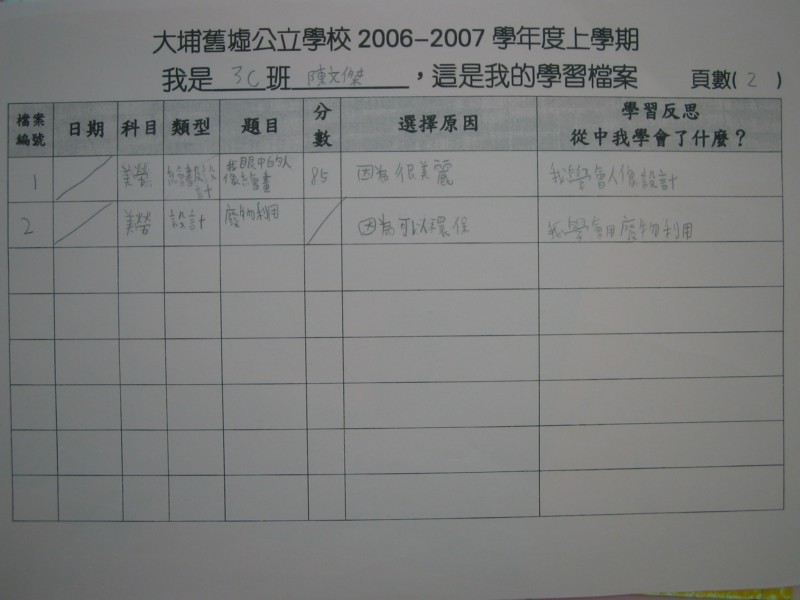 大埔舊墟公立學校 2006-2007 學年度上學期
我是 3C 班 陳文傑 ，這是我的學習檔案 頁數( 2 )
檔案編號 日期 科目 類型 題目 分數 選擇原因 學習反思 從中我學會了什麼？
1 美勞 繪畫設計 我眼中的人像繪畫 85 因為很美麗 我學會人像設計
2 美勞 設計 廢物利用 因為可以環保 我學會用廢物利用